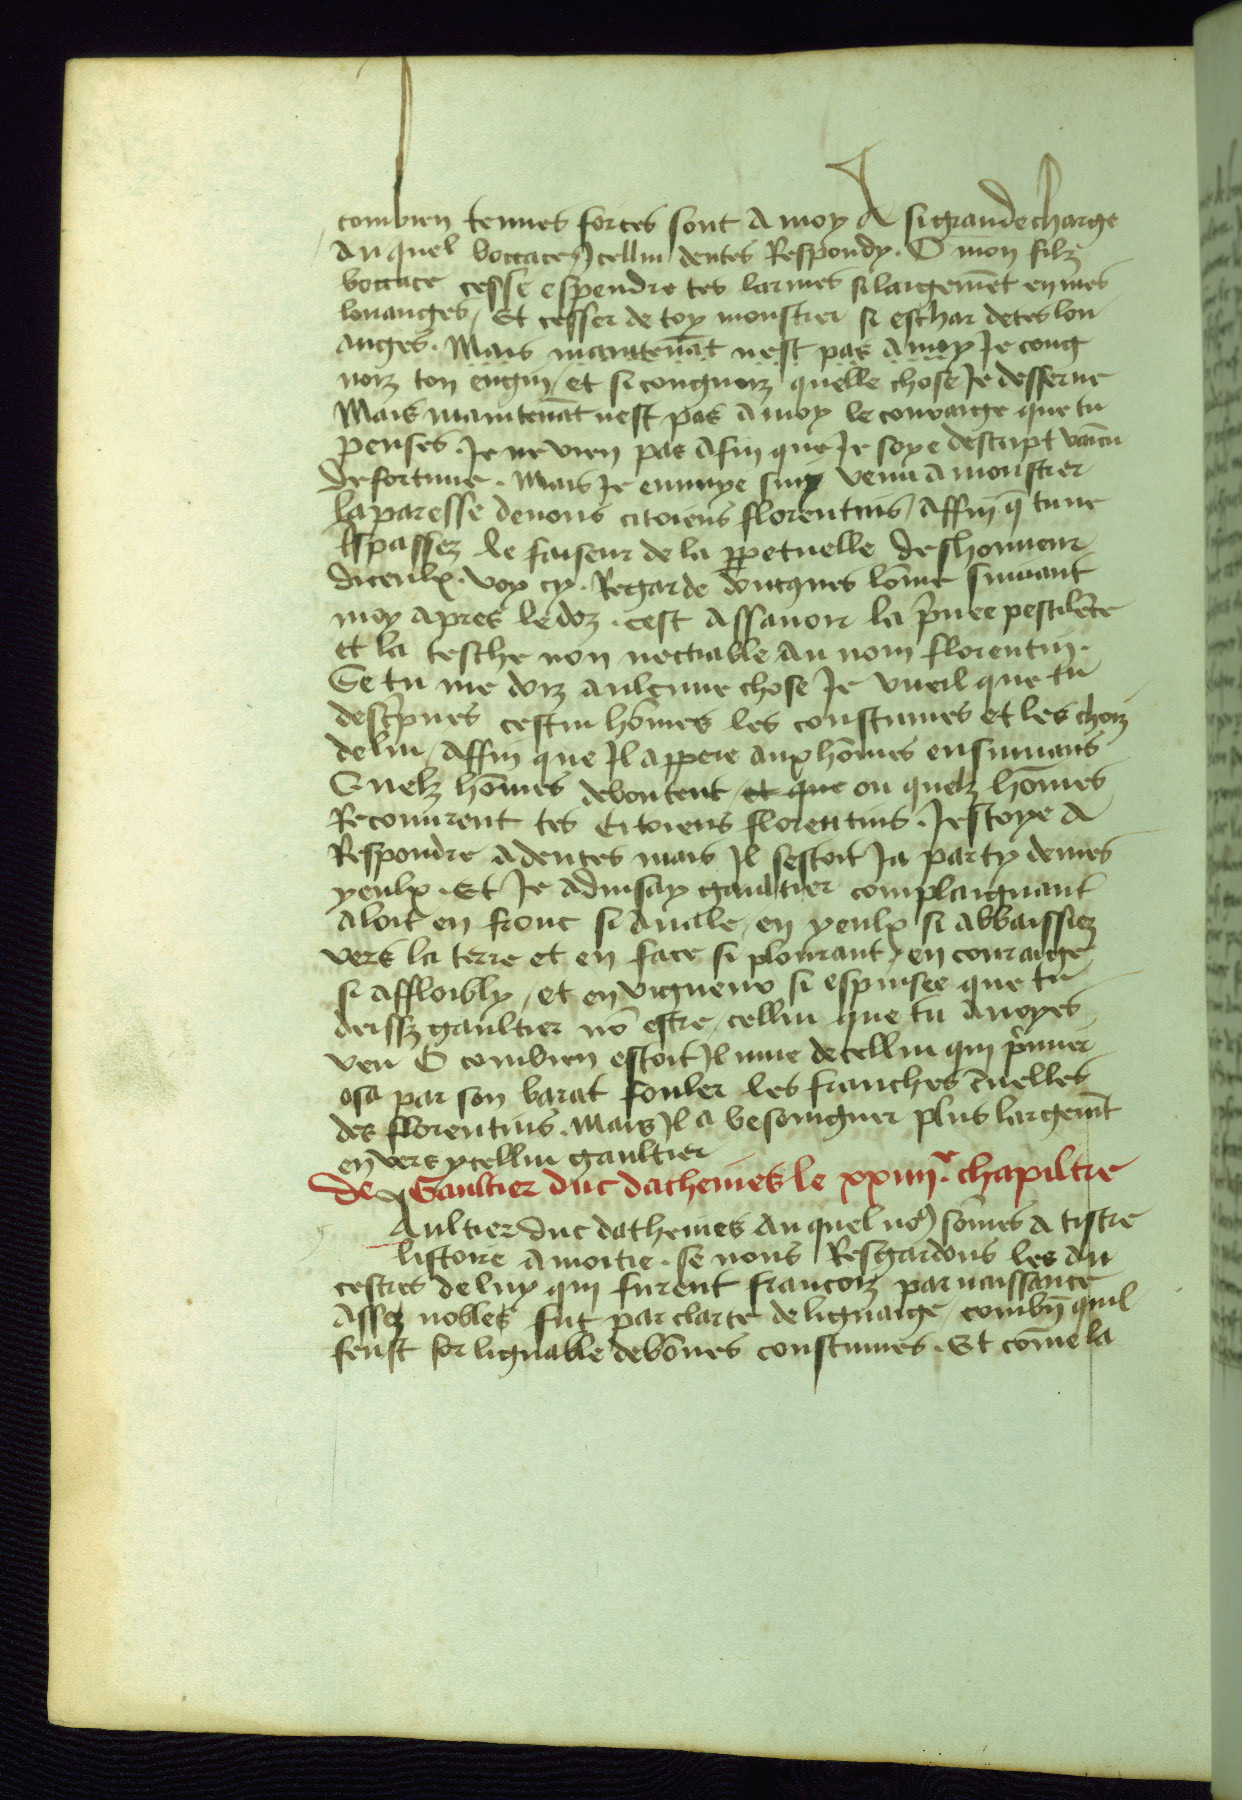 combien tenues forces sont a moy A si grande charge
Auquel boccace Icellui dentes Respondy . O mon filz
boccace cesse espendre tes larmes si largemẽt en mes
louanges / Et cesser de toy monstrer si eschar de tes lou
anges . Mais maintenãt nest pas a moy Je cong
nois ton engin / et si congnois quelle chose Je desserue
Mais maintenãt nest pas a moy le couraige que tu
penses . Je ne vien pas afin que Je soye descript vaĩcu
de fortune . Mais Je ennuye suis venu a monstrer
la paresse de vous citoiens florentins / affin q̃ tu ne
tspasses le faiseur de la ppetuelle deshonneur
diceulx . voy cy . Regarde doncques lõme suiuant
moy apres le doz . cest assauoir la priuee pestilẽce
et la tesche non nectiable au nom florentin .
Se tu me dois aulcune chose Je vueil que tu
descripues cestui hõmes les coustumes et les choiz
de lui / affin que Il appere aux hõmes ensuiuans
Quelz hõmes deboutent et que ou quelz hõmes
Recourent tes Citoiens florentins . Jestoye a
Respondre a dentes mais Il sestoit Ja party de mes
yeulx . Et Je aduisay gaultier complaignant
aloit en fronc si auale / en yeulx si abbaissiez
vers la terre et en face si plourant / en couraige
si affloibly / et en vigueur si espuisee que tu
deisses gaultier nõ estre / cellui que tu auoyes
veu O combien estoit Il mue de cellui qui p̃mier
osa par son barat fouler les franches ceruelles
des florentins . Mais Il a besoingner plus largemẽt
en vers ycellui gaultier
de Gaultier duc dathenies le xxiiiie . chapiltre
Aultier duc dathenies auquel nos sõmes a tistre
listoire a moitie . se nous Resgardons les an
cestres de luy qui furent francois par naissance
Assez nobles fut par clarte de lignaige / combiẽ quil
feust forlignable de bõnes coustumes . Et cõme la